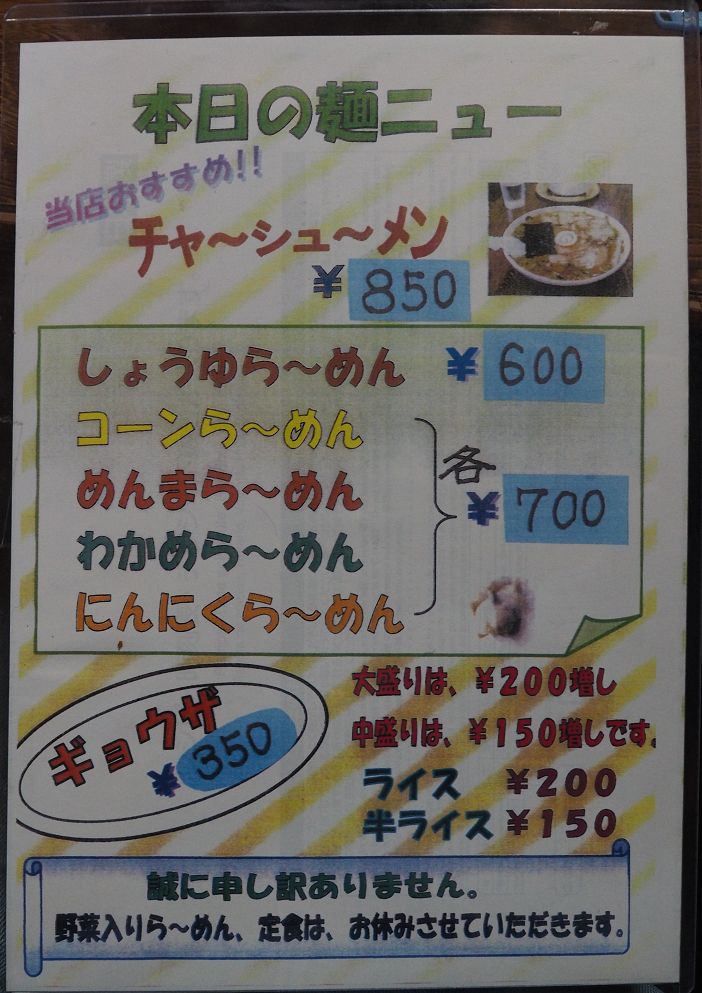 本日の麺ニュー
当店おすすめ!!
チャ～シュ～メン
¥850
しょうゆら～めん ¥600
コーンら～めん
めんまら～めん
わかめら～めん
にんにくら～めん
各
¥700
ギョウザ
¥350
大盛りは、¥200増し
中盛りは、¥150増しです。
ライス ¥200
半ライス ¥150
誠に申し訳ありません。
野菜入りら～めん、定食は、お休みさせていただきます。